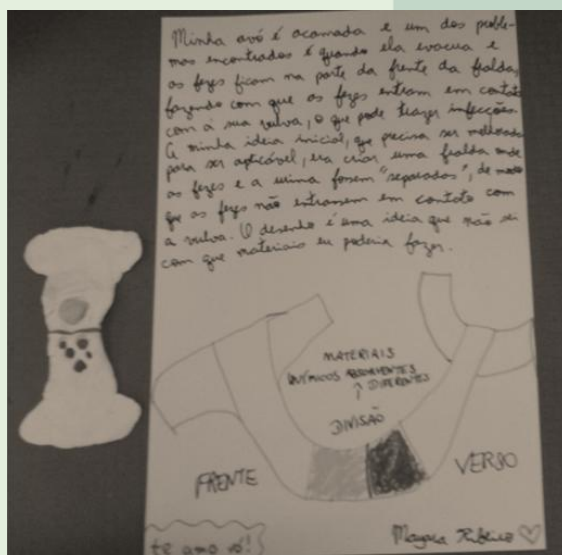 Minha avó é acamada e um dos proble-
mas encontrados é quando ela evacua e
as fezes ficam na parte da frente da fralda,
fazendo com que as fezes entram em contato
com a sua vulva, o que pode trazer infecções.
A minha ideia inicial, que precisa ser melhorada
para ser aplicável, era criar uma fralda onde
as fezes e a urina fossem "separadas", de modo
que as fezes não entrassem em contato com
a vulva. O desenho é uma ideia que não sei
com que materiais eu poderia fazer.
MATERIAIS
QUÍMICOS ABSORVENTES
↑ DIFERENTES
DIVISÃO
FRENTE
VERSO
te amo vó!
Ribeiro